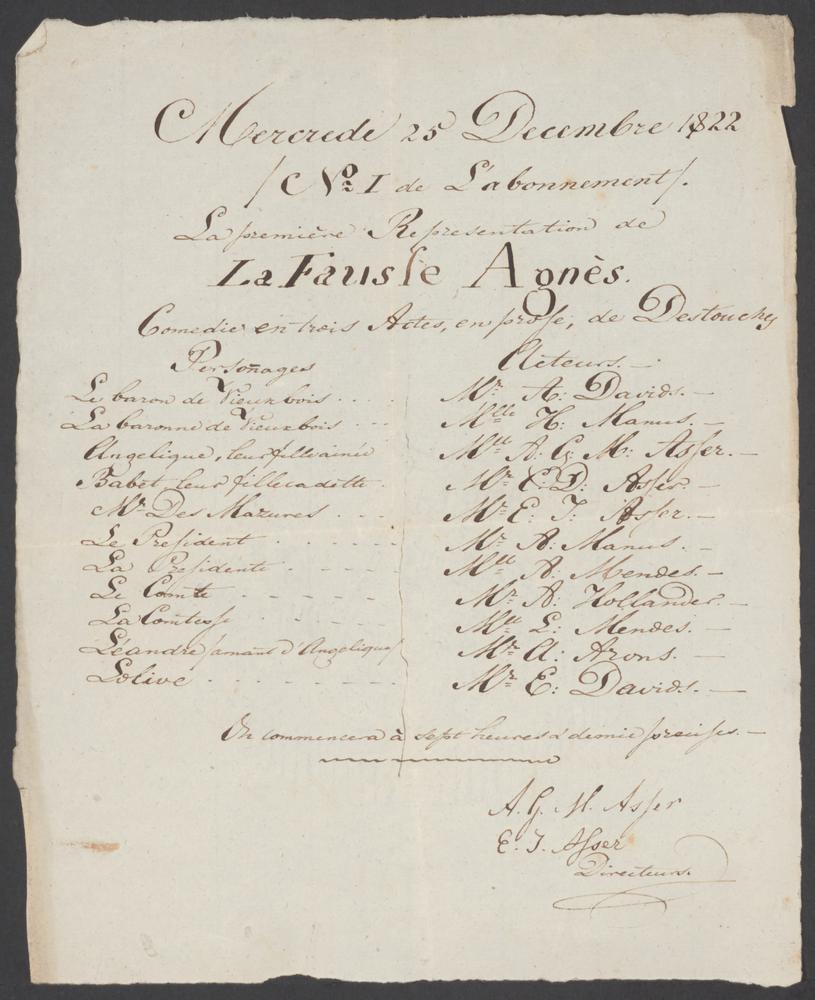 Mercredi 25 Decembre 1822
/ No. I de L'abonnement /.
La première Representation de
La Fausse Agnès.
Comedie en trois Actes, en prose, de Destouches
Personages Acteurs. —
Le baron de Vieuxbois . . . . Mr. A: Davids. —
La baronne de Vieuxbois . . . Mlle H: Manus. —
Angelique, leur fille ainée Mlle A: G: M: Asser. —
Babet, leur fille cadette . Mr. E: D: Asser. —
Mr. Des Mazures . . . Mr. E: J: Asser. —
Le President . . . . . . Mr. A: Manus. —
La Presidente . - - - - Mlle A: Mendes. —
Le Comte - - - - - - Mr. A: Hollander. —
La Comtesse . . . . . Mlle L: Mendes. —
Léandre /amant d'Angelique/ Mr. A: Arons. —
Lolive . . - - - - - - Mr. E: Davids. —
On commencera à sept heures & demie precises. —
A. G. M. Asser
E. J. Asser
Directeurs.